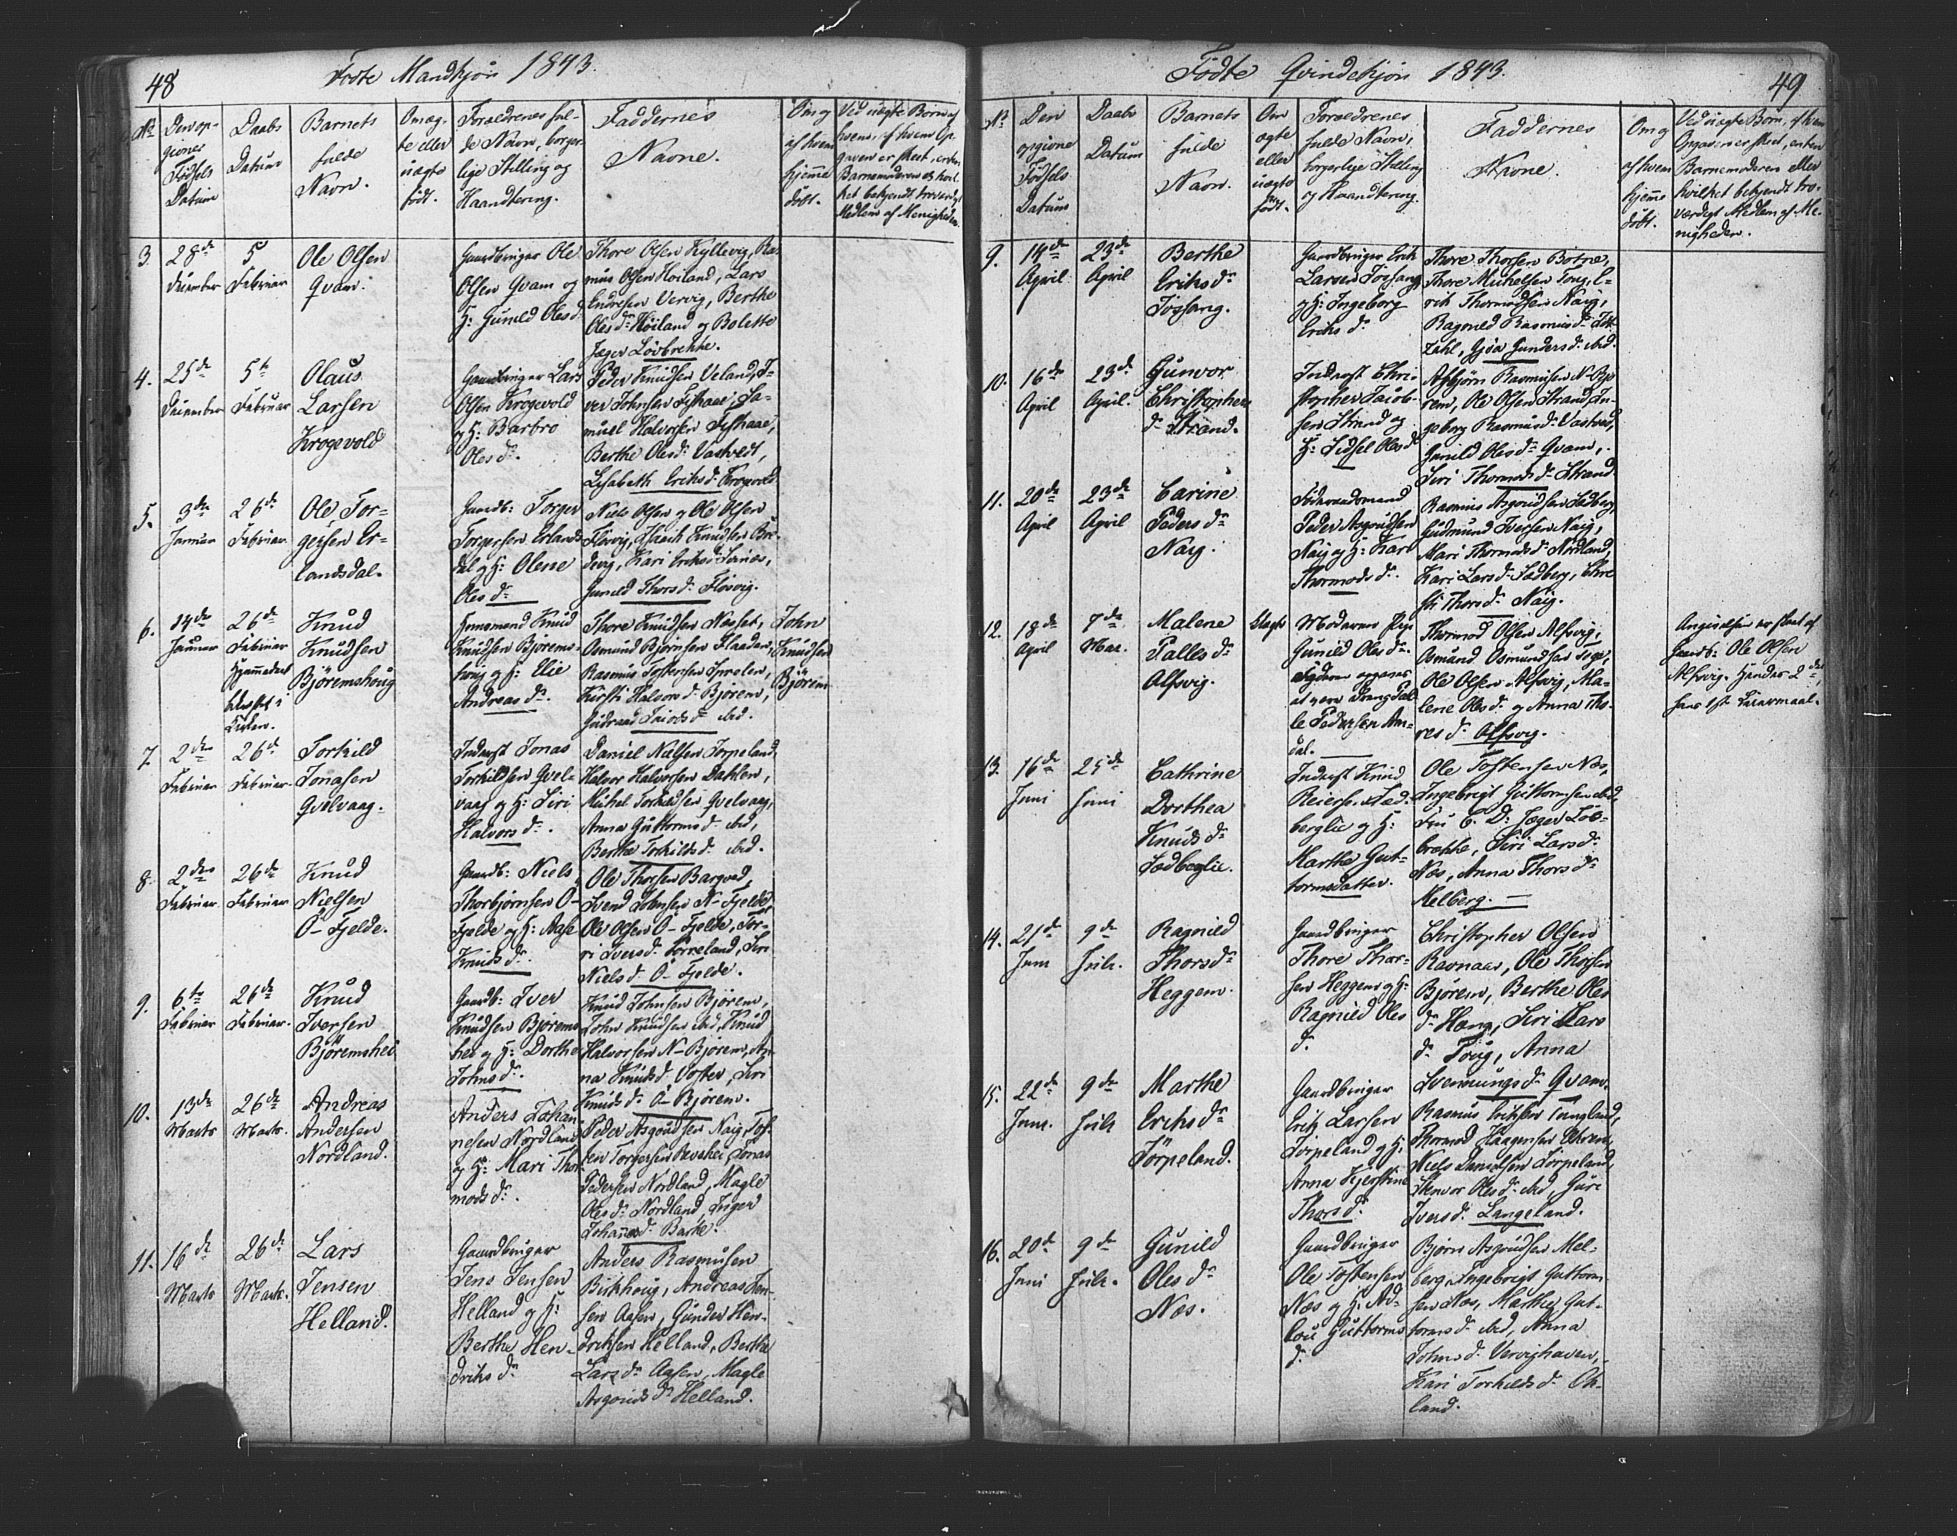 48
Fødte Mandkjøn 1843.
No
Den op-
givne
Fødsels
Datum
Daabs
Datum
Barnets
fulde
Navn.
Om æg-
te eller
uægte
født.
Forældrenes ful-
de Navn, borger-
lige Stilling og
Haandtering.
Faddernes
Navne.
Om og
af hvem
hjemme
døbt.
Ved uægte Børn af
hvem, af hvem Op-
gaven er skeet, enten
Barnemoderen eller
Medlem af Menigheden.
3.
28de
December
5
Februar
Ole Olsen
Qvam.
Gaardbruger Ole
Olsen Qvam og
H: Gunild Olesd.
Thore Olsen Kyllevig, Ras-
mus Olsen Høiland, Lars
Endresen Vervig, Berthe
Olesdr Høiland og Bolette
Jæger Løvbrekke.
4.
25de
December
5te
Februar
Olaus
Larsen
Krogevold
Gaardbruger Lars
Olsen Krogevold
og H: Barbro
Olesdr.
Peder Knudsen Veland, I-
ver Johnsen Fisskaae, Sa-
muel Halvorsen Fisskaae,
Berthe Olesdr Vastvedt,
Lisabeth Eriksdr Krogevold
5.
3die
Januar
26de
Februar
Ole Tor-
gersen Er-
landsdal.
Gaardb: Torger
Torgersen Erlands-
dal og H: Olene
Olesdr
Niels Olsen og Ole Olsen
Gunild Thorsdr Fløsvig.
6.
14de
Januar
26de
Februar
Hjemmedøbt
Kirken.
Knud
Knudsen
Bjøremshoug
Huusmand Knud
Knudsen Bjørems-
houg og H: Elie
Andreasdr.
Thore Knudsen Næsset,
Osmund Bjørnsen Flaaden,
Rasmus Tostensen
Kirsti Halvorsdr Bjørem,
ibid.
John
Knudsen
Bjørem
7.
2den
Februar
26de
Februar.
Torkild
Jonasen
Qvelvaag.
Inderst Jonas
Torkildsen Qvel-
vaag og H: Siri
Halvorsdr.
Daniel Nielsen Tørpeland,
Halvor Halvorsen Dahlen,
Mikkel Torkildsen Qvelvaag,
Anna Guttormsdr ibid,
Berthe Torkildsdr ibid.
8.
2den
Februar.
26de
Februar
Knud
Nielsen
Ø-Fjelde.
Gaardb: Niels
Thorbjørnsen Ø-
Fjelde og H: Aase
Knudsdr.
Ole Thorsen Barqved,
Svend Johnsen N-Fjelde,
Ole Olsen Ø-Fjelde, Tor-
ri Iversdr Tørreland, Siri
Nielsdr Ø-Fjelde.
9.
6te
Februar
26de
Februar.
Knud
Iversen
Bjøremshei
Gaardb: Iver
Knudsen Bjørems-
hei og H: Dorthe
Johnsdr.
Knud Johnsen Bjørem,
John Knudsen ibid, Knud
Halvorsen N-Bjørem, An-
na Knudsdr Voster, Siri
Knudsdr Ø-Bjørem.
10.
13de
Marts
26de
Marts.
Andreas
Andersen
Nordland.
Anders Johan-
nesen Nordland
og H: Mari Thor-
modsdr.
Peder Asgoudsen Naig, Tos-
ten Torgersen Ravshei, Jonas
Pedersen Nordland, Magle
Olesdr Nordland, Inger
Johannesdr Barke.
11.
16de
Marts
26de
Marts.
Lars
Jensen
Helland.
Gaardbruger
Jens Jensen
Helland og H:
Berthe Hen-
driksdr
Anders Rasmusen
Birkhoug, Andreas Jen-
sen Aasen, Gunder Hen-
driksen Helland, Berthe
Larsdr Aasen, Magle
Asgoudsdr Helland.
49
Fødte Qvindekjøn 1843.
No
Den
opgivne
Fødsels
Datum
Daabs
Datum
Barnets
fulde
Navn.
Om
ægte
eller
uægte
født.
Forældrenes
fulde Navn,
borgerlige Stilling
og Haandtering.
Faddernes
Navne.
Om og
af hvem
hjemme
døbt.
Ved uægte Børn, af hvem
Opgaven er skeet, enten
Barnemoderen eller
hvilket bekjendt tro-
værdigt Medlem af Me-
nigheden.
9.
14de
April
23de
April
Berthe
Eriksdr
Tøssang.
Gaardbruger Erik
Larsen Tøssang
og H: Ingeborg
Eriksdr
Thore Thorsen Botne,
Thore Mikkelsen Toug, E-
rik Thormodsen Naig,
Ragnild Rasmusdr
Gjøa Gundersdr ibid.
10.
16de
April
23de
April.
Gunvor
Christophers
dr Strand.
Inderst Chri-
stopher Jacob-
sen Strand og
H: Sidsel Olesdr
Asbjørn Rasmusen N-Bjø-
rem, Ole Olsen Strand, In-
geborg Rasmusdr Vastved,
Gunild Olesdr Qvam,
Siri Thormodsdr Strand
11.
20de
April
23de
April
Carine
Pedersdr
Naig.
Føderaadsmand
Peder Asgoudsen
Naig og H: Kari
Thormodsdr.
Rasmus Asgoudsen Sadberg,
Gudmund Iversen Naig,
Mari Thormodsdr Nordland,
Kari Larsdr Sadberg, Chri-
sti Thorsdr Naig.
12.
18de
April
7de
Mai.
Malene
Pallesdr
Alsvig.
Uægte
Moderen Pige
Gunild Olesdr.
Faderen opgives
at være
Pedersen Am-
dal.
Thormod Olsen Alsvig,
Osmund Osmundsen
Ole Olsen Alsvig, Ma-
lene Olesdr og Anna Tho-
resdr Alsvig.
Angivelsen er skeet af
Gaardb: Ole Olsen
Alsvig. Hendes 2det,
hans 1ste Leiermaal.
13.
16de
Juni
25de
Juni
Cathrine
Dorthea
Knudsdr
Sadberglie.
Inderst Knud
Reiersen Sad-
berglie og H:
Marthe Gut-
tormsdatter.
Ole Tostensen Næs,
Ingebrigt Guttormsen ibid,
Fru C. D: Jæger Løv-
brække, Siri Larsdr
Næs, Anna Thorsdr
Melberg.
14.
21de
Juni
9de
Juli.
Ragnild
Thorsdr
Heggem.
Gaardbruger
Thore Thor-
sen Heggem og H:
Ragnild Oles
dr.
Christopher Olsen
Ravnaas, Ole Thorsen
Bjørem, Berthe Oles
dr Houg, Siri Lars
dr Toug, Anna
Svenningsdr Qvam.
15.
22de
Juni.
9de
Juli
Marthe
Eriksdr
Tørpeland.
Gaardbruger
Erik Larsen
Tørpeland og H:
Anna Kjerstine
Thorsdr.
Rasmus Eriksen Tungland,
Thormod Haagensen
Niels Danielsen Tørpeland,
Steinvor Olesdr ibid, Guri
Iversdr Langeland.
16.
20de
Juni
9de
Juli.
Gunild
Olesdr
Næs.
Gaardbruger
Ole Tostensen
Næs og H: Ad-
lou Guttorms
dr.
Bjørn Asgoudsen Mel-
berg, Ingebrigt Guttorm-
sen Næs, Marthe Gut-
tormsdr ibid, Anna
Johnsdr Vervighaven,
Kari Torkildsdr Øk-
land.